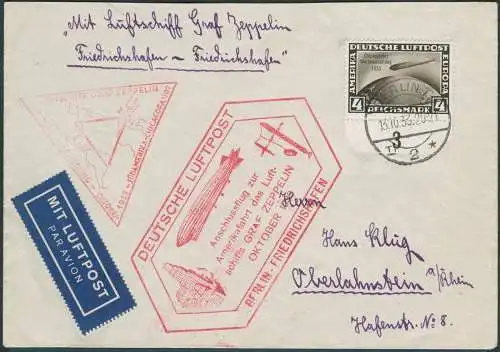 "Mit Luftschiff Graf Zeppelin
Friedrichshafen – Friedrichshafen"
DEUTSCHE LUFTPOST
AMERIKA
EUROPA
1933
4
REICHSMARK
4
BERLIN
13.10.33.20-21
3
2 *
GRAF ZEPPELIN
1933
MIT LUFTPOST
PAR AVION
DEUTSCHE LUFTPOST
Anschlussflug zur
Amerikafahrt des Luft-
schiffs GRAF ZEPPELIN
OKTOBER
BERLIN-FRIEDRICHSHAFEN
Herrn
Hans Klug
Oberlahnstein a/Rhein
Hafenstr. No 8.